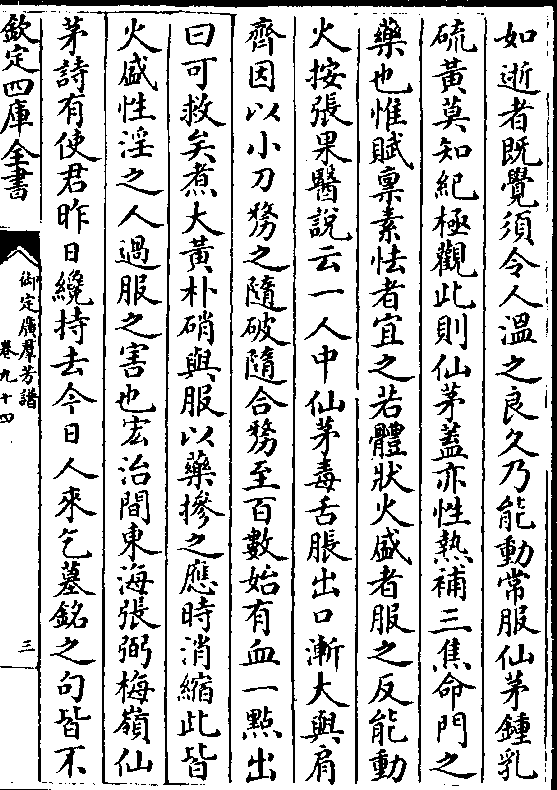 如逝者既覺須令人溫之良久乃能動常服仙茅鍾乳
硫黃莫知紀極觀此則仙茅蓋亦性熱補三焦命門之
藥也惟賦稟素怯者宜之若體狀火盛者服之反能動
火按張杲醫說云一人中仙茅毒舌脹出口漸大與肩
齊因以小刀剺之隨破隨合剺至百數始有血一點出
曰可救矣煮大黃朴硝與服以藥摻之應時消縮此皆
火盛性淫之人過服之害也宏治間東海張弼梅嶺仙
茅詩有使君昨日纔持去今日人來乞墓銘之句皆不
欽定四庫全書
御定廣羣芳譜
卷九十四
三